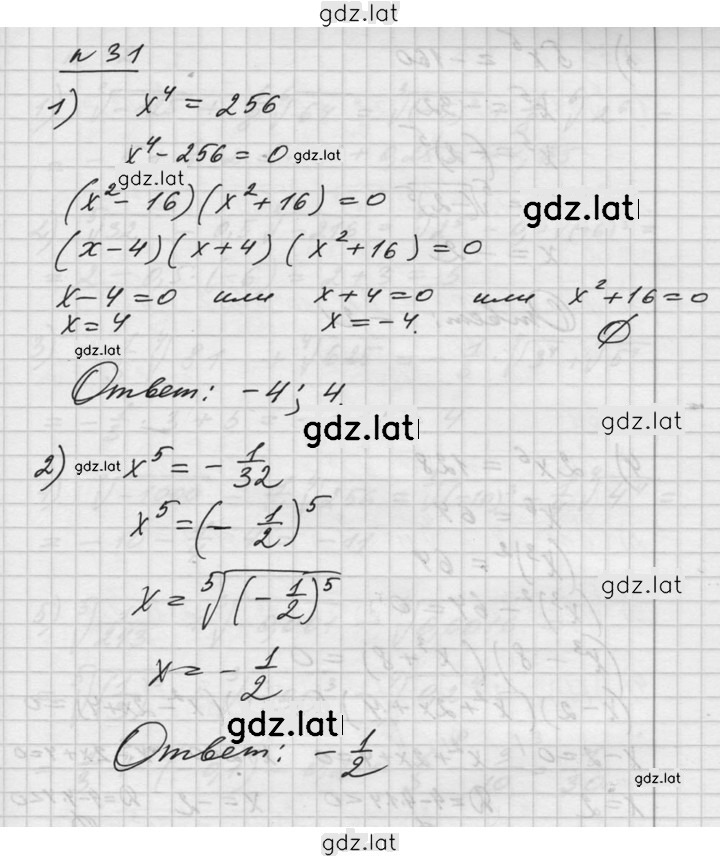 gdz.lat
n 31
1) x⁴ = 256
x⁴ - 256 = 0 gdz.lat
gdz.lat
(x² - 16)(x² + 16) = 0 gdz.lat
(x - 4)(x + 4)(x² + 16) = 0
x - 4 = 0 или x + 4 = 0 или x² + 16 = 0
x = 4 x = -4. ∅
gdz.lat
Ответ: -4; 4.
gdz.lat
gdz.lat
2) gdz.lat x⁵ = - 1/32
x⁵ = (- 1/2)⁵
gdz.lat
x = ⁵√(- 1/2)⁵
x = - 1/2
gdz.lat
Ответ: - 1/2
gdz.lat
gdz.lat